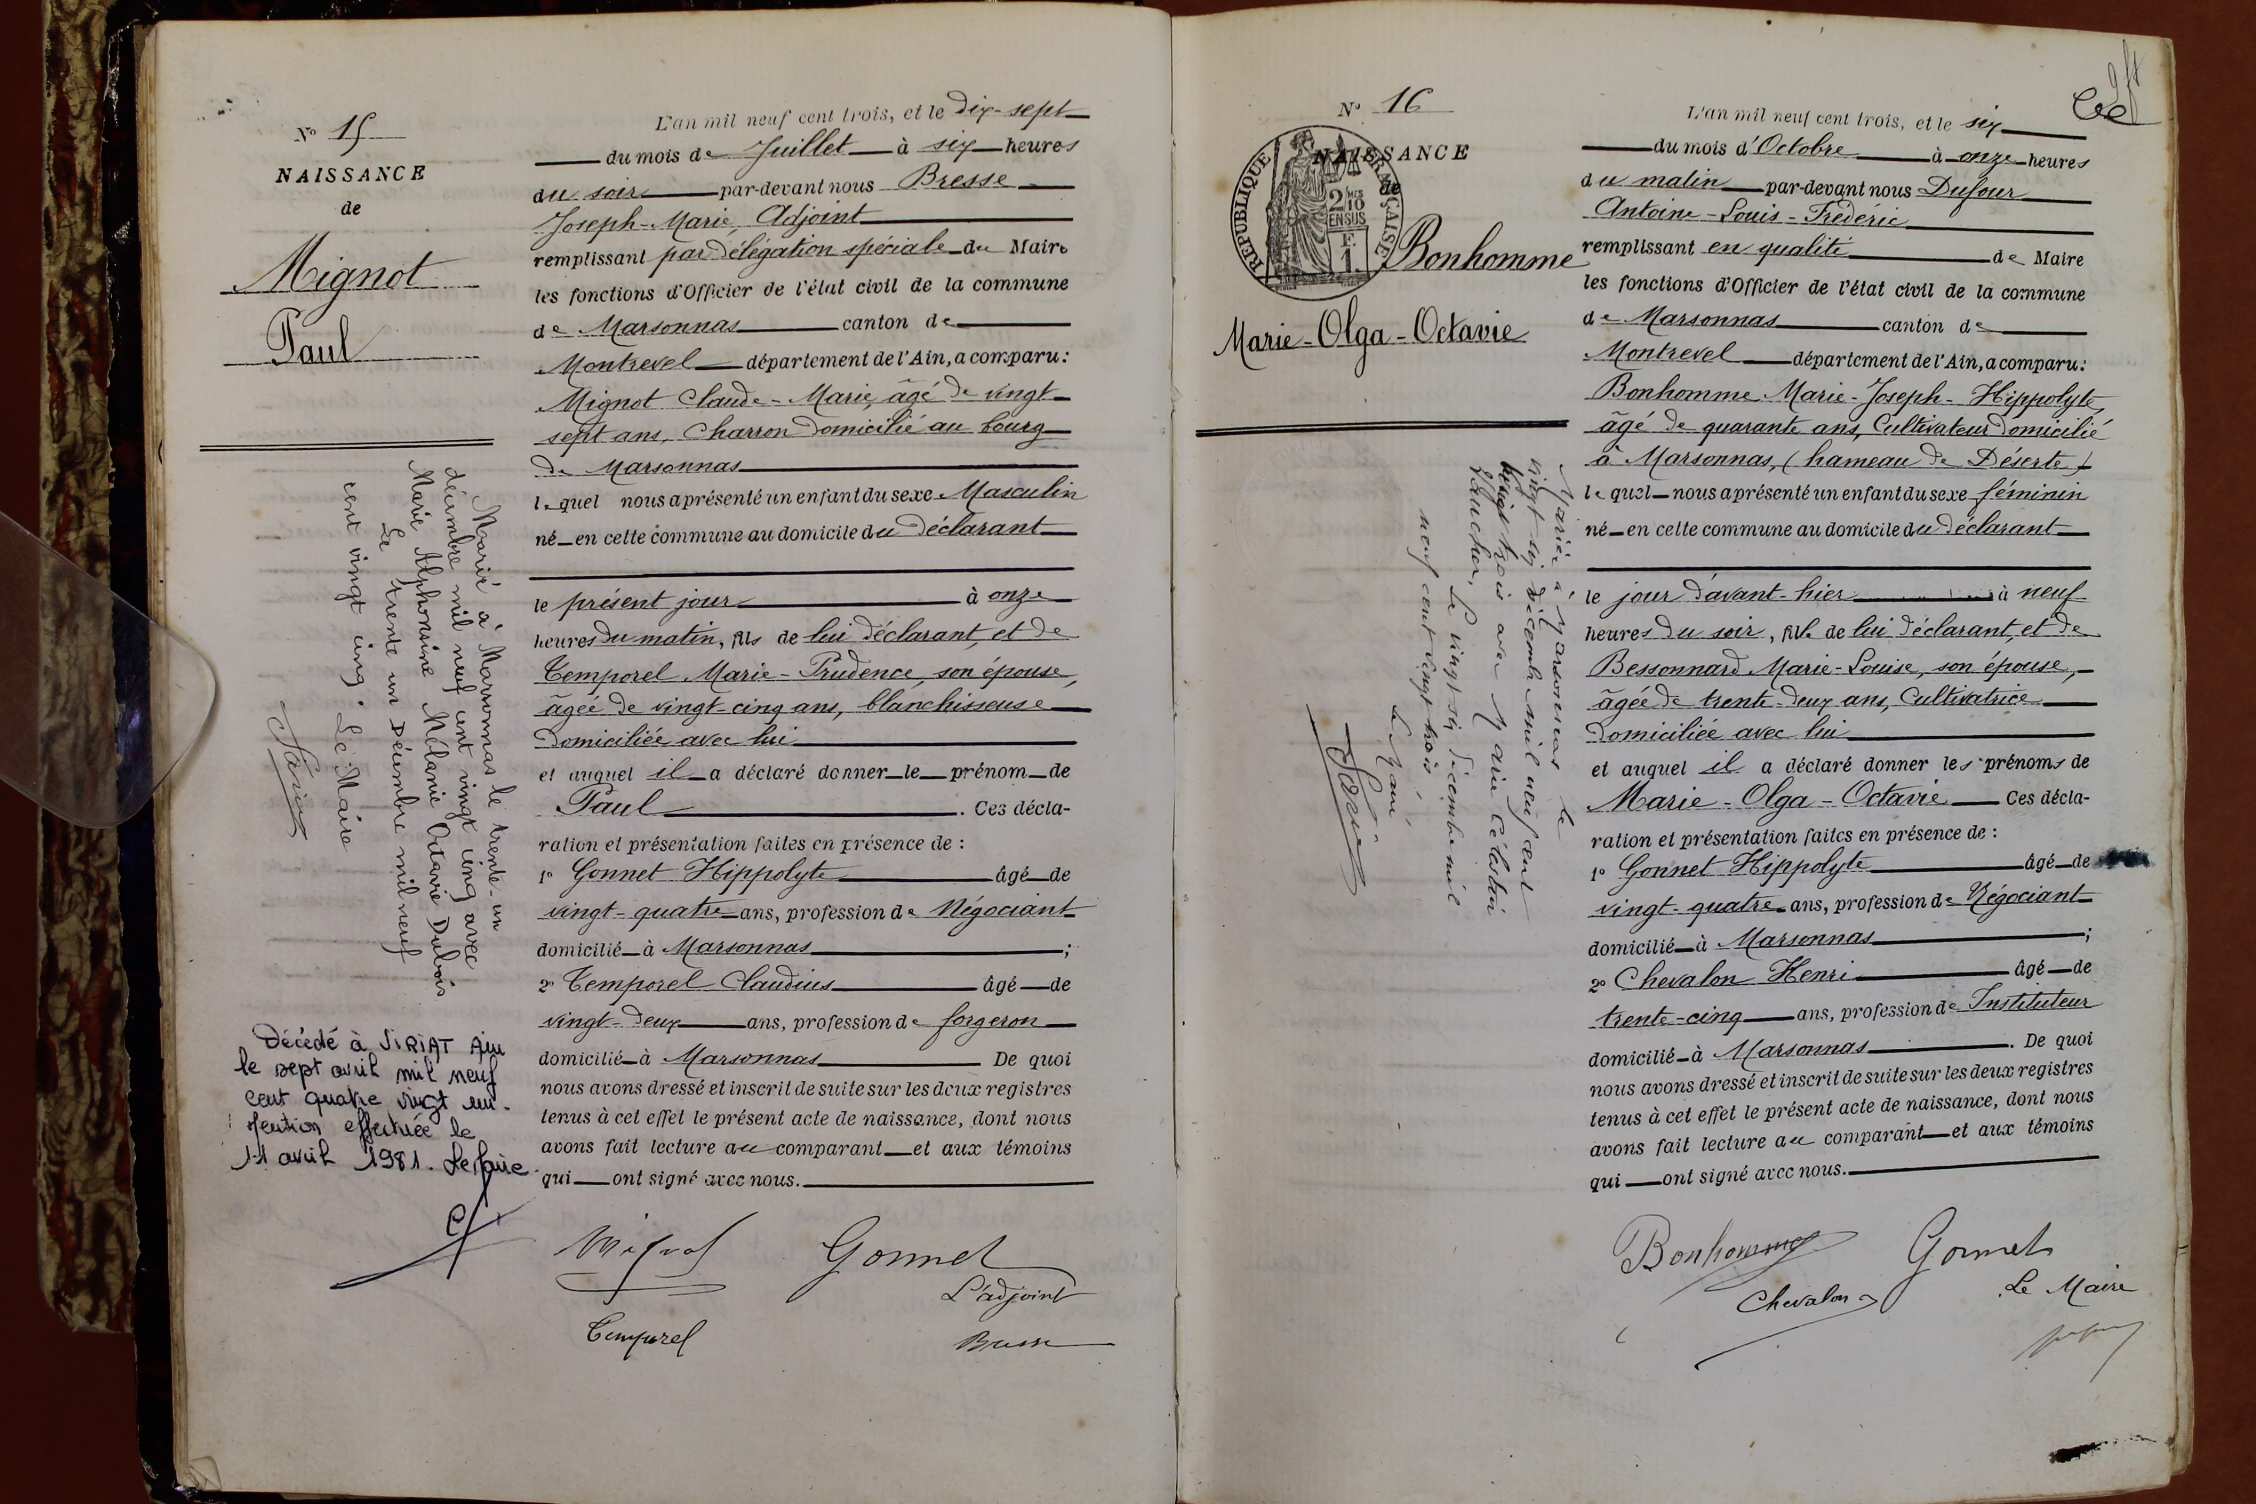 N° 15
NAISSANCE
de
Mignot
Paul
Marié à Marsonnas le trente-un
décembre mil neuf cent vingt cinq avec
Marie Alphonsine Mélanie Octavie Dubois
Le trente un Décembre mil neuf
cent vingt cinq. Le Maire
Décédé à VIRIAT Ain
le sept avril mil neuf
cent quatre vingt un.
Mention effectuée le
11 avril 1981. Le Maire
L'an mil neuf cent trois, et le dix-sept
du mois de Juillet à six heures
du soir par-devant nous Bresse
Joseph-Marie, Adjoint
remplissant par délégation spéciale du Maire
les fonctions d'Officier de l'état civil de la commune
de Marsonnas canton de
Montrevel département de l'Ain, a comparu:
Mignot Claude-Marie, âgé de vingt-
sept ans, Charron domicilié au bourg
de Marsonnas
lequel nous a présenté un enfant du sexe Masculin
né en cette commune au domicile du déclarant
le présent jour à onze
heures du matin, fils de lui déclarant, et de
Temporel Marie-Prudence, son épouse,
âgée de vingt-cinq ans, blanchisseuse
domiciliée avec lui
et auquel il a déclaré donner le prénom de
Paul. Ces décla-
ration et présentation faites en présence de :
1° Gonnet Hippolyte âgé de
vingt-quatre ans, profession de Négociant
domicilié à Marsonnas ;
2° Temporel Claudius âgé de
vingt-deux ans, profession de forgeron
domicilié à Marsonnas De quoi
nous avons dressé et inscrit de suite sur les deux registres
tenus à cet effet le présent acte de naissance, dont nous
avons fait lecture au comparant et aux témoins
qui ont signé avec nous.
Mignot Gonnet
L'adjoint
Temporel Bresse
N° 16
NAISSANCE
de
RÉPUBLIQUE FRANÇAISE
2/10
EN SUS
F.
1.
Bonhomme
Marie-Olga-Octavie
Mariée à Marsonnas le
vingt six décembre mil neuf cent
vingt trois avec Marie Célestin
Le vingt six décembre mil
neuf cent vingt trois,
Le Maire
L'an mil neuf cent trois, et le six
du mois d'Octobre à onze heures
du matin par-devant nous Dufour
Antoine-Louis-Frédéric
remplissant en qualité de Maire
les fonctions d'Officier de l'état civil de la commune
de Marsonnas canton de
Montrevel département de l'Ain, a comparu:
Bonhomme Marie-Joseph-Hippolyte,
âgé de quarante ans, Cultivateur domicilié
à Marsonnas, (hameau de Déserte)
lequel nous a présenté un enfant du sexe féminin
né en cette commune au domicile du déclarant
le jour d'avant-hier à neuf
heures du soir, fille de lui déclarant, et de
Bessonnard Marie-Louise, son épouse,
âgée de trente-deux ans, Cultivatrice
domiciliée avec lui
et auquel il a déclaré donner les prénoms de
Marie-Olga-Octavie Ces décla-
ration et présentation faites en présence de :
1° Gonnet Hippolyte âgé de
vingt-quatre ans, profession de Négociant
domicilié à Marsonnas ;
2° Chevalon Henri âgé de
trente-cinq ans, profession de Instituteur
domicilié à Marsonnas. De quoi
nous avons dressé et inscrit de suite sur les deux registres
tenus à cet effet le présent acte de naissance, dont nous
avons fait lecture au comparant et aux témoins
qui ont signé avec nous.
Bonhomme Gonnet
Chevalon Le Maire